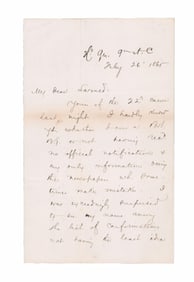 Hd Qrs. 9th A.C.
Feby 26th 1865
My Dear Larned:
Yours of the 22d came
last night. I hardly know
yet whether I am a
or not having had
no official notification &
my only information being
the newspaper wh. some
times make mistakes. I
was exceedingly surprised
to see my name among
the list of confirmations
not having the least idea